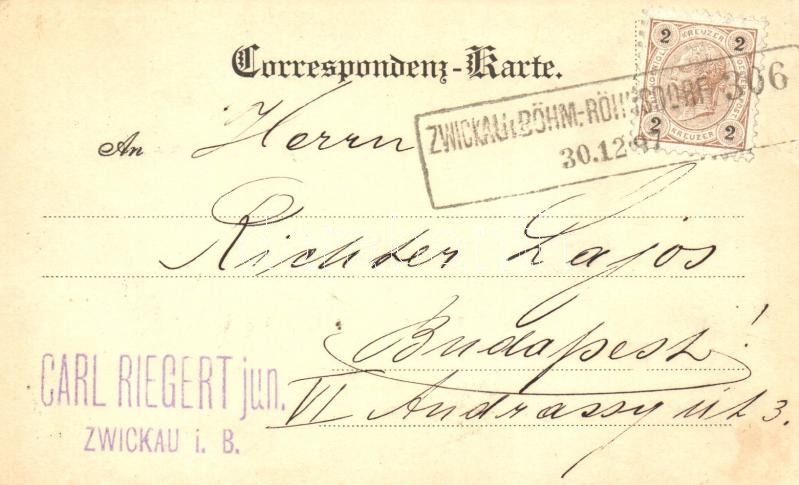 Correspondenz-Karte.
2 KREUZER 2
2 KREUZER 2
ZWICKAU i BÖHM.-RÖHRSDORF 306
30.12.97
An Herrn
Richter Lajos
Budapest!
VI Andrassy út 3.
CARL RIEGERT jun.
ZWICKAU i. B.